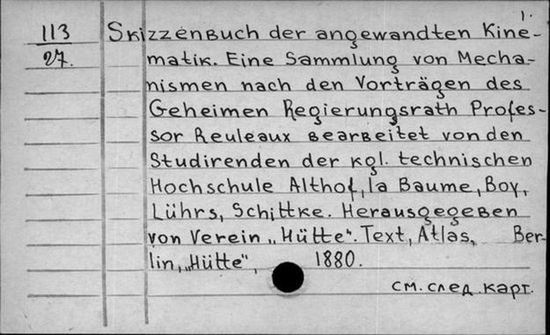 1.
113 Skizzenbuch der angewandten Kine-
27. matik. Eine Sammlung von Mecha-
nismen nach den Vorträgen des
Geheimen Regierungsrath Profes-
sor Reuleaux bearbeitet von den
Studirenden der kgl. technischen
Hochschule Althof, la Baume, Boy,
Lührs, Schittke. Herausgegeben
von Verein „Hütte". Text, Atlas, Ber-
lin, „Hütte", 1880.
см. след. карт.